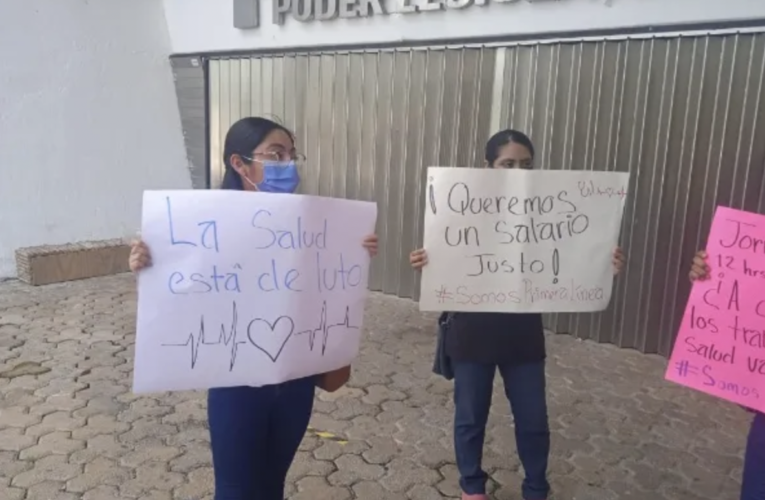 PODER
La Salud
está de luto
¡Queremos
un Salario
Justo!
#SomosPrimeraLínea
Jor
12 hrs
¿A
los tra
Salud va
#Somos